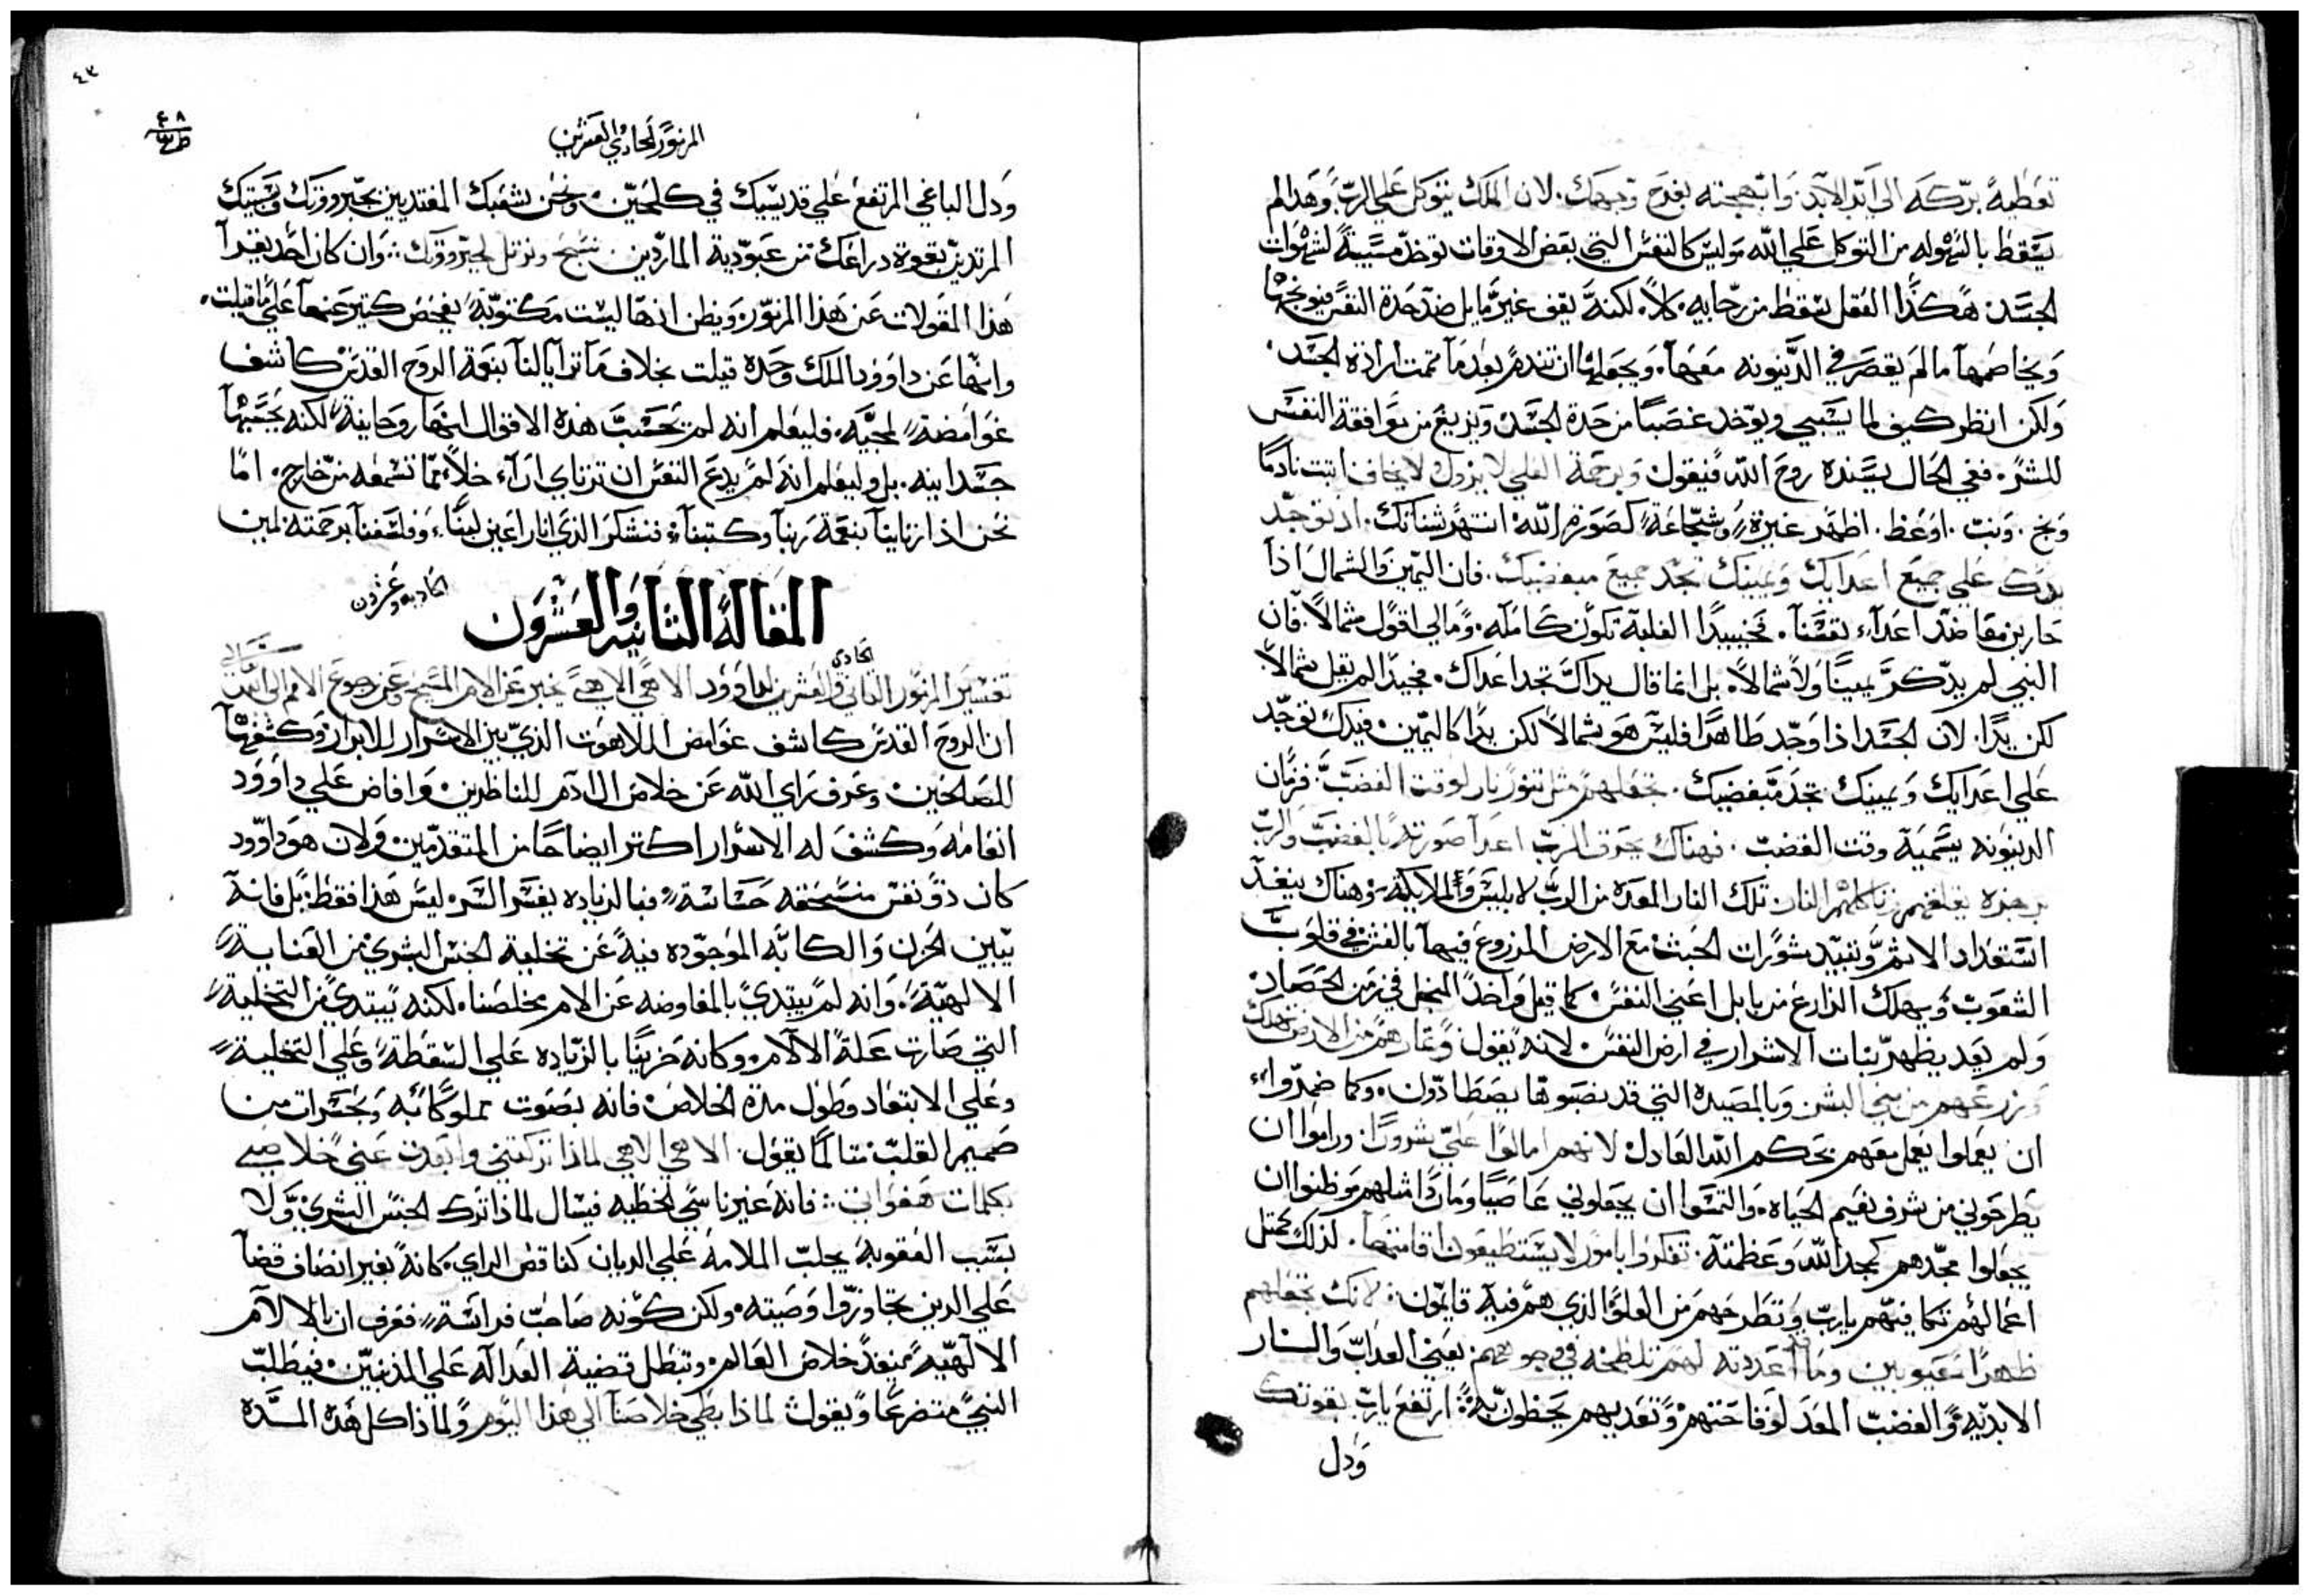 تعطيه بركه الى ابد الابد. وابهجته بفرح وجهك. لان الملك يتوكل علي الرب. وهذا لم
يسقط بالسهوله من التوكل علي الله. وليس كالنفس التي بعض الاوقات توخد مسبية لشهوات
الجسد. هكذا العقل يسقط من رجايه. كلا. لكنه يقف غير مايل ضد حدة النفس فيوبخها
ويخاصمها ما لم يقصر في الدينونه معها. ويجعلها ان تندم بعدما تممت ارادة الجسد.
ولكن انظر كيف لما يسبي ويوخد غصبا من حدة الجسد ويزيغ من موافقة النفس
للشر. ففي الحال يسنده روح الله فيقول وبرحمة العلي لا يزول لا يخاف اثبت نادما
وبخ. وبت. اوعظ. اظهر غيرة وشجاعة كصورة الله انتهر شناتك. اذ توجد
يدك علي جميع اعدايك ويمينك تجد جميع مبغضيك. فان اليمين والشمال اذا
حاربن معا ضد اعداء نفسنا. فحينيدا الغلبة تكون كامله. وما لي اقول شمالا. فان
النبي لم يدكر يمينا ولا شمالا. بل انما قال يداك تجد اعداك. فجيدا لم يقل شمالا
لكن يدا. لان الجسد اذا وجد طاهرا فليس هو شمالا لكن يدا كاليمين. فيدك توجد
علي اعدايك ويمينك تجد مبغضيك. تجعلهم مثل تنور نار لوقت الغضب. فزمان
الدينونه يسميه وقت الغضب. فهناك يحرق الرب اعدا صورته بالغضب والرب
برجزه يقلقهم وتاكلهم النار. تلك النار المعدة من الرب لابليس والملايكته. وهناك ينفد
استعداد الاثم وتبيد شورات الخبث مع الارض المزروع فيها بالغش في قلوب
الشعوب. ويهلك الزارع من بابل اعني النفس. كما قيل واخد المنجل في زمن الحصاد.
ولم يعد يظهر نبات الاشرار في ارض النفس. لانه يقول وثمارهم من الارض تهلك
وزرعهم من بني البشر. وبالمصيده التي قد نصبوها يصطادون. وكما ضمدوا
ان يعملوا يعمل معهم بحكم الله العادل. لانهم امالوا علي شرورا. وراموا ان
يطرحوني من شرف نعيم الحياه. والتمسوا ان يجعلوني عاصيا وماردا مثلهم وظنوا ان
يجعلوا مجدهم كمجد الله وعظمته. تفكروا بامور لا يستطيعون اقامتها. لذلك كمثل
اعمالهم تكافيهم يارب وتطرحهم من العلو الذي هم فيه قايمون. لانك تجعلهم
ظهرا وما قد اعددته لهم تلطخه في وجوههم. يعني العداب والنار
الابديه والغضب المعد لوقاحتهم وتعديهم يحظون به. ارتفع يارب بقوتك
ودل
٤٣
٤٨
المزمور الحادي العشرين
ودل الباغي المرتفع علي قديسيك في كل حين. ونحن شعبك المفتديين بجبروتك وسبيك
المرتدين بقوة دراعك من عبودية الماردين. نسبح ونرتل لجبروتك. وان كان احد يقرا
هذا المقولات عن هذا المزمور. ويظن انها ليست مكتوبة بفحص كتير عنها علي ما قيلت.
وانها عن داوود الملك وحده قيلت بخلاف ما ترايا لنا بنعمة الروح القدس كاشف
غوامضه لمحبيه. فليعلم انه لمن يحسب هذه الاقوال انها روحانية لكنه يحسبها
جسدانيه. بل وليعلم انه لم يدع النفس ان ترتاي اراء خلا مما تسمعه من خارج. اما
نحن اذ ارتاينا بنعمة ربنا وكتبنا. فنشكر الذي انار اعين لبنا. وفلسفنا برحمته امين
المقالة الثانيه والعشرون
الحاديه وعشرون
تفسير المزمور الثاني والعشرين لداوود الاهي الاهي يخبر عن الام المسيح وعن رجوع الامم الى الله
الحادي
تعالى
ان الروح القدس كاشف غوامض اللاهوت الذي بين الاسرار للابرار وكشفها
للصالحين. وعرف براي الله عن خلاص ال ادم للناظرين. وافاض علي داوود
انعامه وكشف له الاسرار اكتر ايضاحا من المتقدمين. ولان هو داوود
كان ذو نفس منسحقه حساسه. فبالزياده يفسر السر. ليس هذا فقط. بل فانه
يبين الحزن والكابه الموجوده فيه عن تخلية الجنس البشري من العناية
الالهيه. وانه لم يبتدي بالمفاوضه عن الام مخلصنا. لكنه يبتدي من التخلية
التي صارت علة الالام. وكانه حزينا بالزياده علي السقطة وعلي التخلية
وعلي الابتعاد وطول مدة الخلاص. فانه بصوت مملو كابه وبحسرات من
صميم القلب متالما يقول. الاهي الاهي لماذا تركتني وابعدت عني خلاصي
بكلمات هفواتي. فانه غير ناسي الخطيه فيسال لماذا ترك الجنس البشري. ولا
بسبب العقوبه يجلب الملامه علي الديان كناقص الراي. كانه بغير انصاف قضا
علي الدين تجاوزوا وصيته. ولكن كونه صاحب فراسة. فعرف ان بالالام
الالهيه مينفد خلاص العالم. وتبطل قضية العداله علي المذنبين. فيطلب
النبي متضرعا ويقول. لماذا بطي خلاصنا الي هذا اليوم. ولماذا كل هذه المده